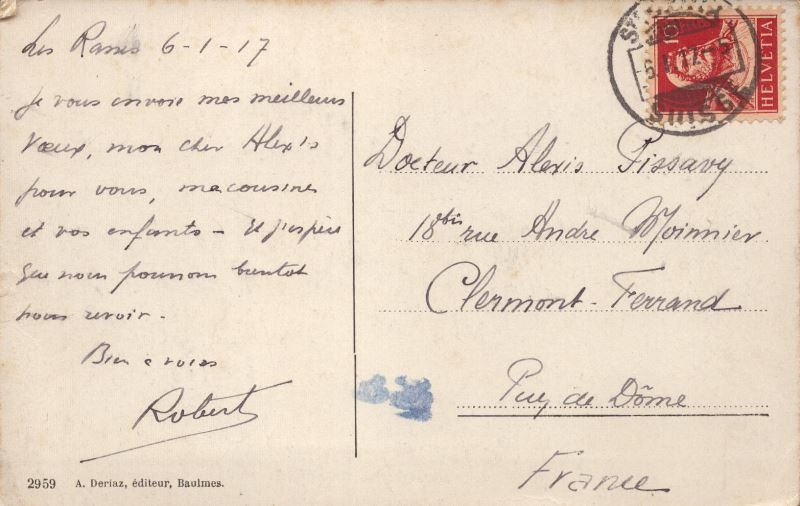 Les Rasses 6-1-17
Je vous envoie mes meilleurs
Vœux, mon cher Alexis
pour vous, ma cousine
et vos enfants – et j'espère
que nous pourrons bientot
nous revoir.
Bien a vous
Robert
2959 A. Deriaz, éditeur, Baulmes.
SUISSE
HELVETIA
Docteur Alexis Pissavy
18bis rue André Moinnier
Clermont-Ferrand
Puy de Dôme
France